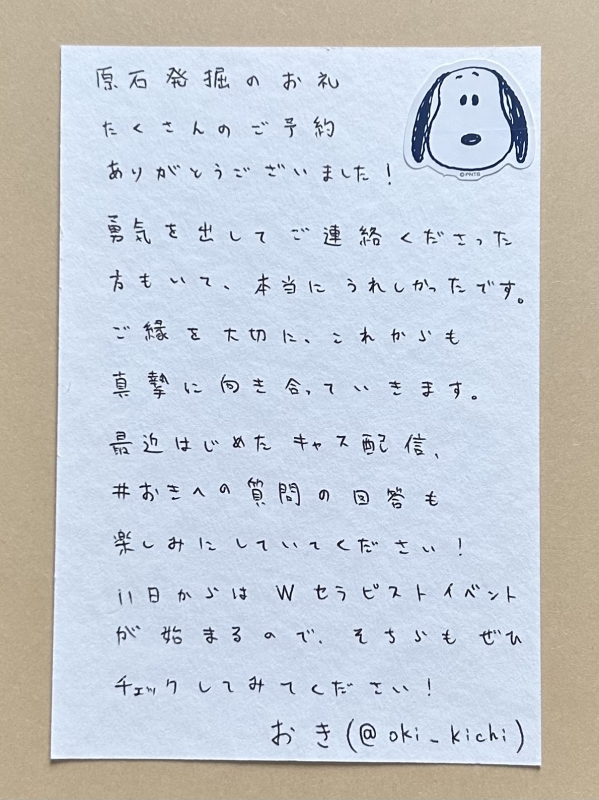 原石発掘のお礼
たくさんのご予約
ありがとうございました!
勇気を出してご連絡くださった
方もいて、本当にうれしかったです。
ご縁を大切に、これからも
真摯に向き合っていきます。
最近はじめたキャス配信、
#おきへの質問の回答も
楽しみにしていてください!
11日からはWセラピストイベント
が始まるので、そちらもぜひ
チェックしてみてください!
おき(@oki_kichi)
©PNTS